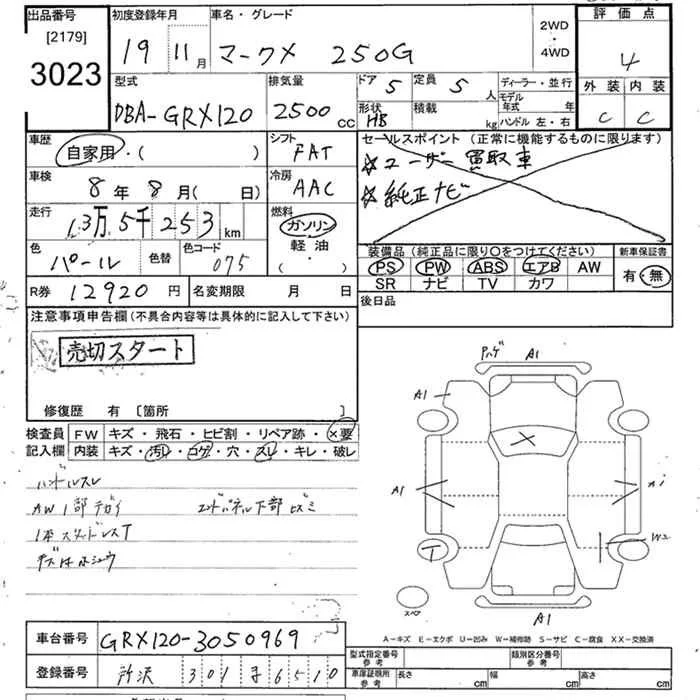 出品番号
[2179]
3023
初度登録年月
19 11月
車名・グレード
マークX 250G
2WD
・
4WD
評価点
4
外装 内装
C C
型式
DBA-GRX120
排気量
2500 cc
ドア 5
定員 5 人
形状 HB
積載 kg
ディーラー・並行
モデル年式 年
ハンドル 左・右
車歴
自家用・( )
シフト
FAT
車検
8年8月( 日)
冷房
AAC
走行
13万5千253km
燃料
ガソリン
軽油
( ・ )
色
パール
色替
色コード
075
R券 12920円
名変期限 月 日
セールスポイント(正常に機能するものに限ります)
☆ユーザー買取車
☆純正ナビ
装備品(純正品に限り○をつけてください)
PS PW ABS エアB AW
SR ナビ TV カワ
新車保証書
有・無
後日品
注意事項申告欄(不具合内容等は具体的に記入して下さい)
売切スタート
修復歴 有 [箇所 ]
検査員記入欄
FW キズ・飛石・ヒビ割・リペア跡・×要
内装 キズ・汚レ・コゲ・穴・スレ・キレ・破レ
ハンドルスレ
AW1部チガイ エンドパネル下部ヒズミ
1本スタッドレスT
キズ
ハゲ A1
A1
A1
W2
スペア
A1
A-キズ E-エクボ U-凹み W-補修跡 S-サビ C-腐食 XX-交換済
車台番号 GRX120-3050969
登録番号 所沢 301 ま 6510
型式指定番号
参考
類別区分番号
参考
車庫証明用
参考
長さ cm
幅 cm
高さ cm